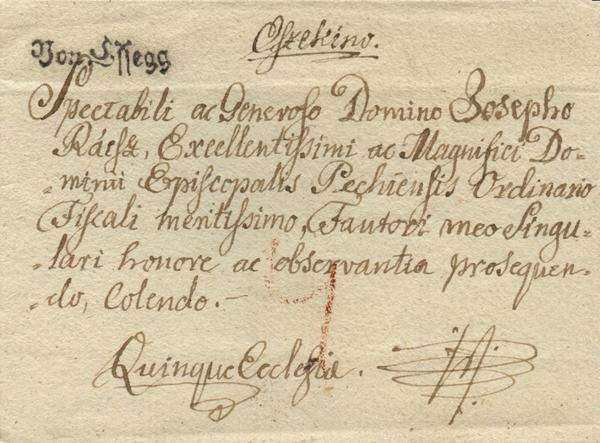 Eszekino.
Von Essegg
Spectabili ac Generoso Domino Josepho
Ráesz, Excellentissimi ac Magnifici Do-
-mini Episcopalis Pechiensis Ordinario
Fiscali meritissimo, Fautori meo Singu-
-lari honore ac observantia prosequen-
-do, Colendo.-
Quinque Ecclesia.